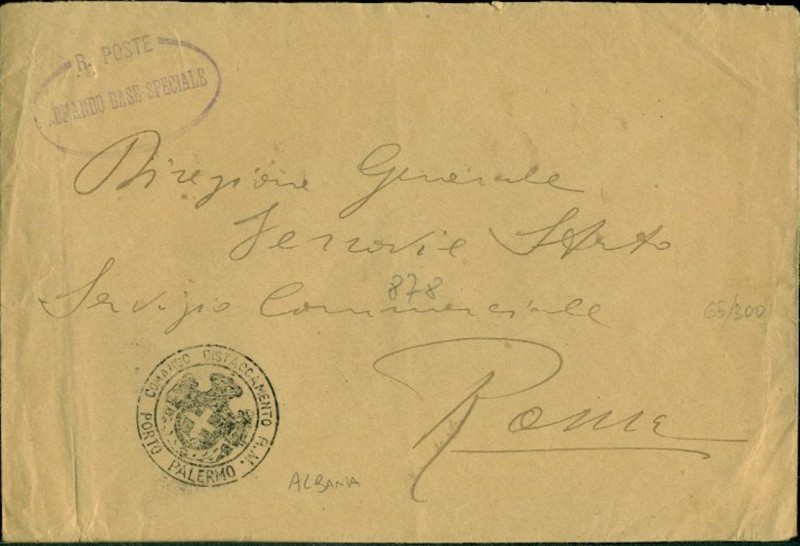 R. POSTE
COMANDO BASE SPECIALE
Direzione Generale
Ferrovie Stato
Servizio Commerciale
878
65/300
Roma
COMANDO DISTACCAMENTO R.M.
PORTO PALERMO
ALBANIA